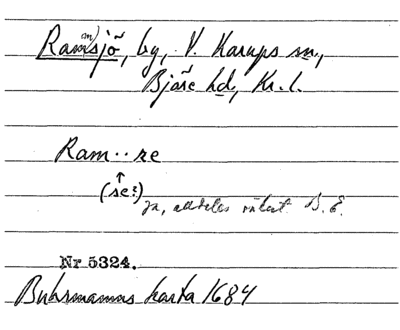 (m)
Ramsjö, by, V. Karups sn,
Bjäre hd, Kr. l.
Ram··re
↑
(se?) ja, alldeles säkert B.E.
Nr 5324.
Buhrmanns karta 1684